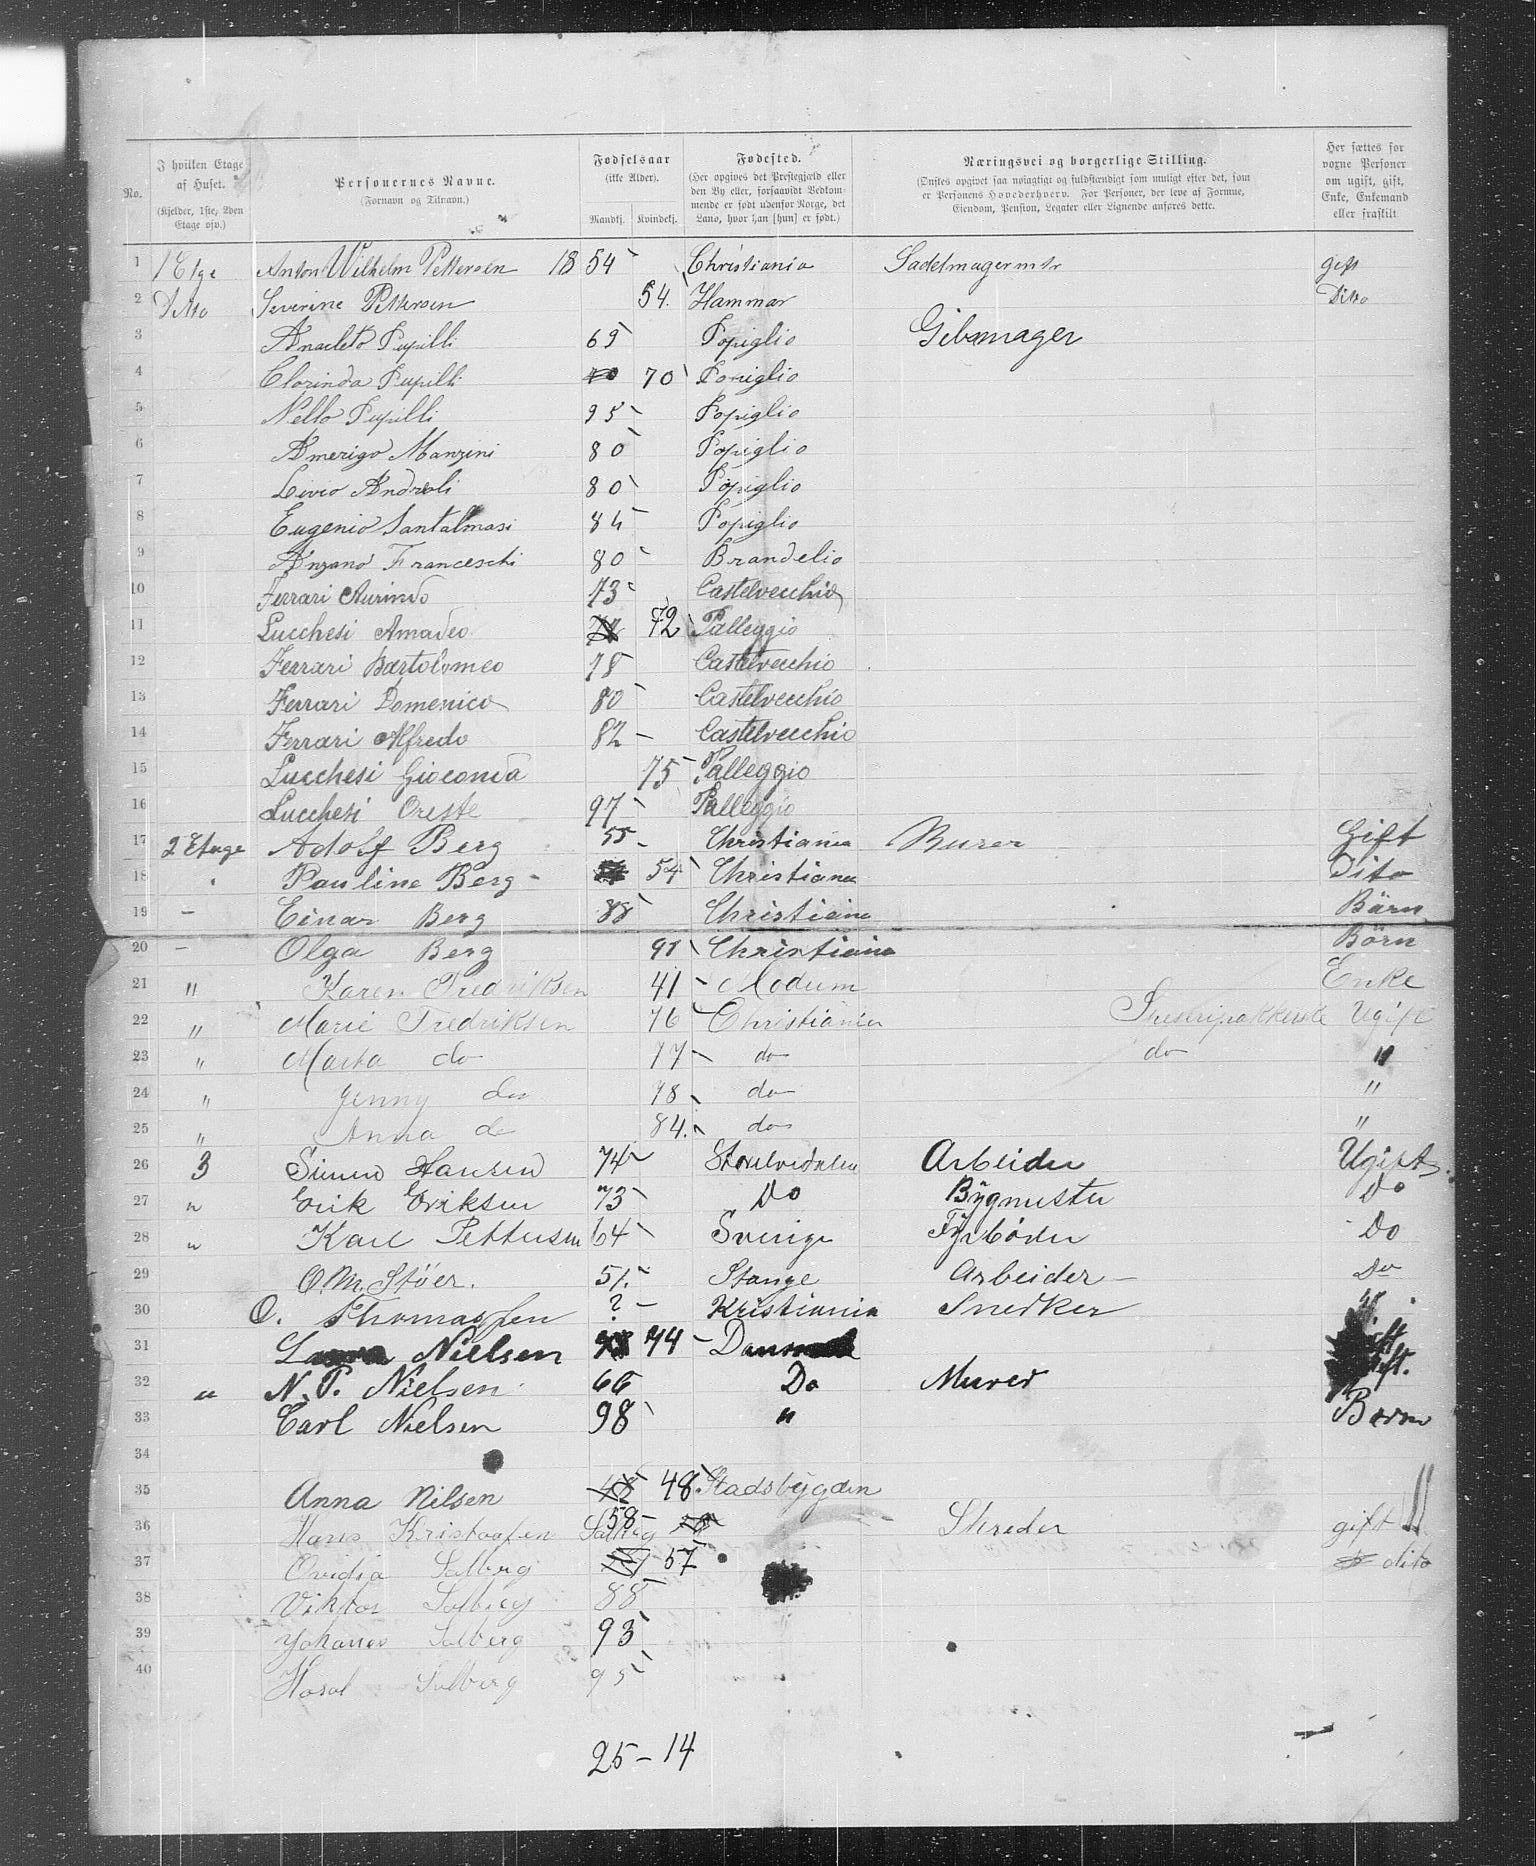 No.
I hvilken Etage af Huset. (Kjelder, 1ste, 2den Etage osv.)
Personernes Navne. (Fornavn og Tilnavn.)
Fødselsaar (ikke Alder). Mandkj. Kvindekj.
Fødested. (Her opgives det Prestegjæld eller den By eller, forsaavidt Vedkommende er født udenfor Norge, det Land, hvor han [hun] er født.)
Næringsvei og borgerlige Stilling. (Ønskes opgivet saa nøiagtigt og fuldstændigt som muligt efter det, som er Personens Hovederhverv. For Personer, der leve af Formue, Eiendom, Pension, Legater eller Lignende anføres dette.)
Her sættes for voxne Personer om ugift, gift, Enke, Enkemand eller fraskilt
1 1 Etge Anton Wilhelm Pettersen 18 54 Christiania Sadelmagermstr gift
2 Ditto Severine Pettersen 54. Hammar Ditto
3 Anacleto Pupilli 69 Popiglio Gibsmager
4 Clorinda Pupilli 70 Popiglio
5 Nello Pupilli 95 Popiglio
6 Amerigo Manzini 80 Popiglio
7 Livio Andreli 80 Popiglio
8 Eugenio Santalmasi 84 Popiglio
9 Anzano Franceschi 80 Brandelio
10 Ferrari Aurindo 73 Castelvecchio
11 Lucchesi Amadeo 72 Palleggio
12 Ferrari Bartolomeo 78 Castelvecchio
13 Ferrari Domenico 80 Castelvecchio
14 Ferrari Alfredo 82 Castelvecchio
15 Lucchesi Gioconda 75 Palleggio
16 Lucchesi Oreste 97 Palleggio
17 2 Etage Adolf Berg 55 Christiania Murer Gift
18 Pauline Berg 54 Christiania Dito
19 - Einar Berg 88 Christiania Børn
20 - Olga Berg 91 Christiania Børn
21 " Karen Fredriksen 41 Modum Enke
22 " Marie Fredriksen 76 Christiania Ugift
23 " Marta do 77 do do "
24 " Jenny do 78 do "
25 " Anna do 84. do "
26 3 Simen Hansen 74 Storelvedalen Arbeider Ugift
27 " Erik Eriksen 73 Do Bygmester Do
28 " Karl Pettersen 64 Sverige Fyrbøder Do
29 O.M. Støer. 51. Stange Arbeider Do
30 O. Thomassen ? Kristiania Snedker
31 Laura Nielsen 74 Danmark
32 " N. P. Nielsen 66 Do Murer
33 Carl Nielsen 98 " Barn
34
35 Anna Nilsen 48 Stadsbygden
36 Hans Kristoafen Solberg 58 Skreder gift
37 Ovidia Solberg 57 dito
38 Viktor Solberg 88
39 Johanes Solberg 93
40 Haral Solberg 95
25 - 14